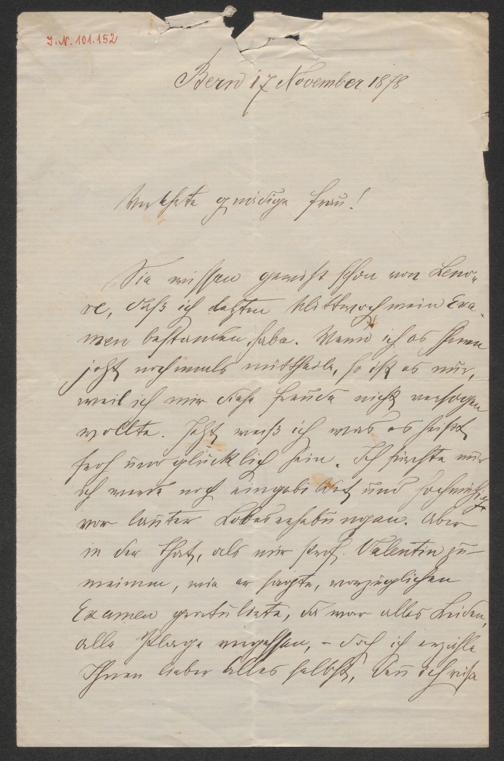 I.N. 101.152
Bern 17 November 1878
Verehrte gnädige Frau!
Sie wissen gewiß schon von Leno-
re, daß ich letzten Mittwoch mein Exa-
men bestanden habe. Wenn ich es Ihnen
jetzt nochmals mittheile, so ist es nur,
weil ich mir diese Freude nicht versagen
wollte. Jetzt weiß ich was es heißt
froh und glücklich sein. Ich fürchte nur
ich werde noch eingebildet und hochmüthig
vor lauter Lobeserhebungen. Aber
in der That, als mir Prof. Valentin zu
meinem, wie er sagte, vorzüglichen
Examen gratulirte, da war alles Leiden,
alle Plage vergessen, – doch ich erzähle
Ihnen lieber alles selbst, denn ich reise